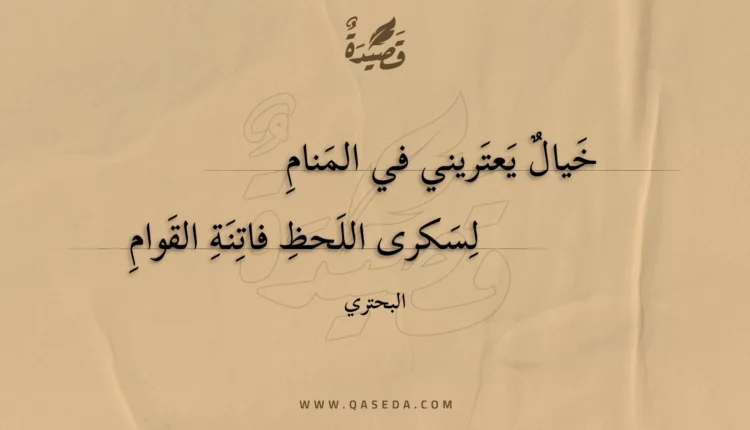 قَصِيْدَةٌ
خَيالٌ يَعتَريني في المَنامِ
لِسَكرى اللَحظِ فاتِنَةِ القَوامِ
البحتري
WWW.QASEDA.COM